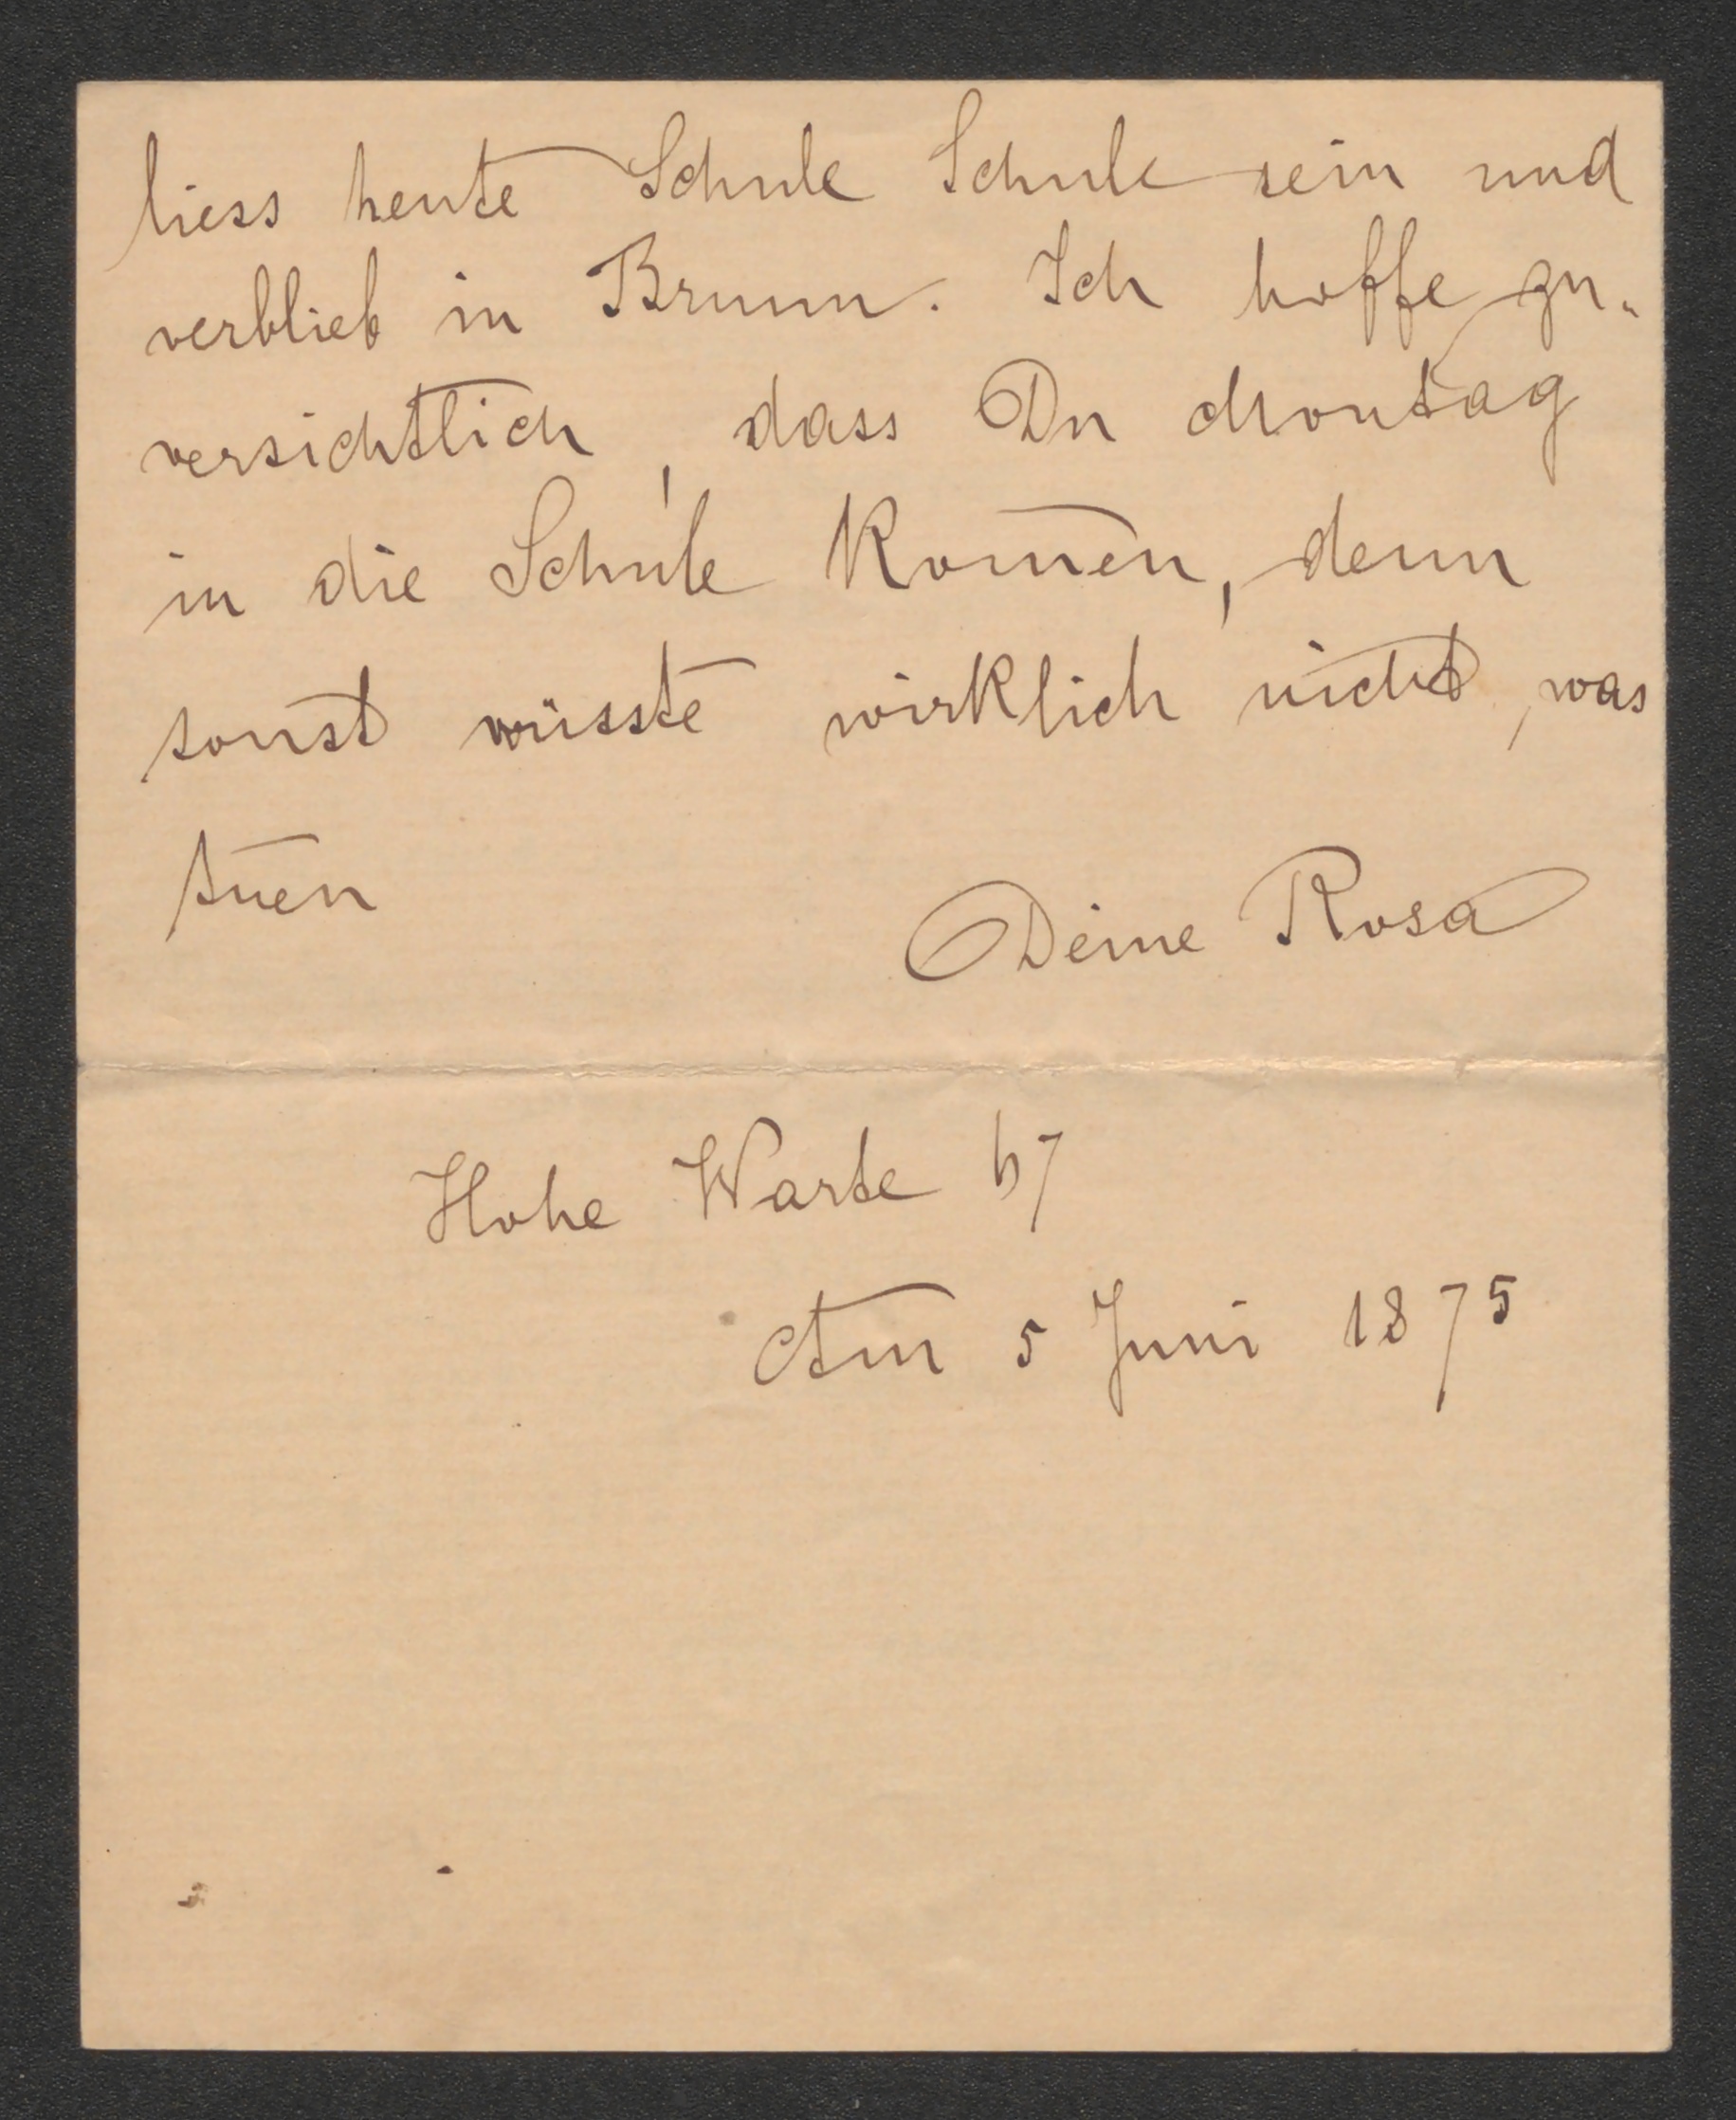 liess heute Schule Schule sein und
verblieb in Brunn. Ich hoffe zu-
versichtlich, dass Du Montag
in die Schule kom̅en, denn
sonst wüsste wirklich nicht, was
tuen
Deine Rosa
Hohe Warte 67
Am 5 Juni 1875